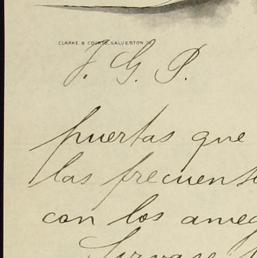 CLARKE & COURTS, GALVESTON
J. G. P.
puertas que
las frecuent
con los ame
Sirvase